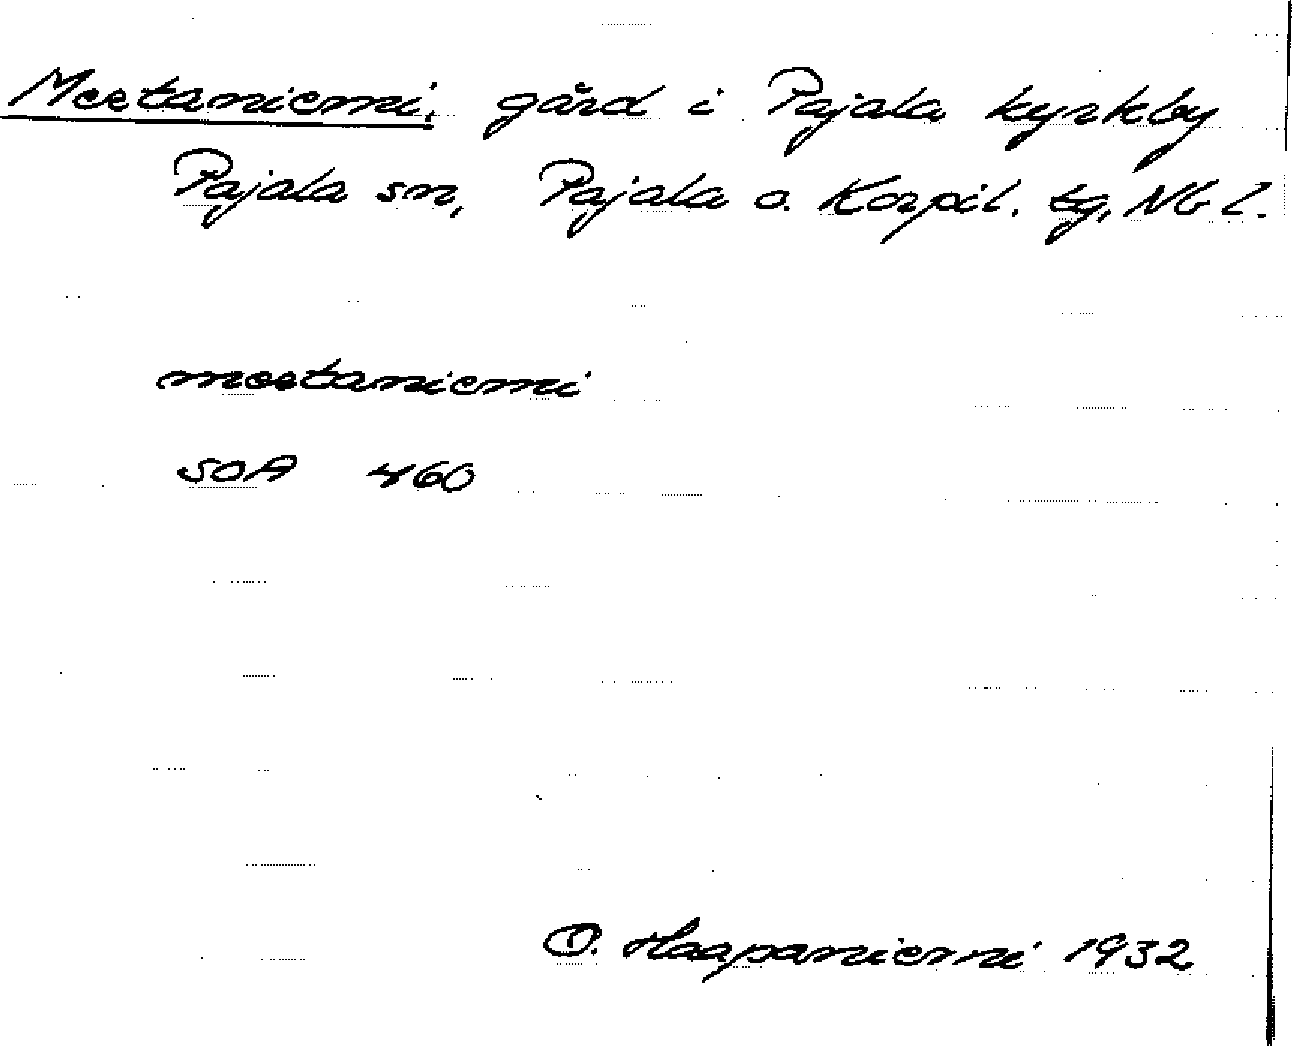 Mestaniemi, gård i Pajala kyrkby
Pajala sn, Pajala o. Korpil. tg, Nb l.
mestaniemi
SOA 460
O. Haapaniemi 1932